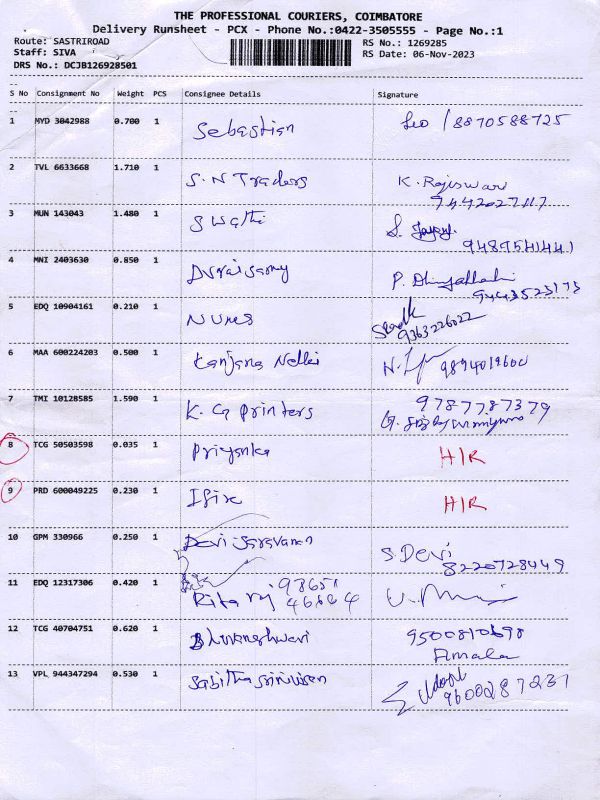 THE PROFESSIONAL COURIERS, COIMBATORE
Delivery Runsheet - PCX - Phone No.:0422-3505555 - Page No.:1
Route: SASTRIROAD RS No.: 1269285
Staff: SIVA RS Date: 06-Nov-2023
DRS No.: DCJB126928501
S No Consignment No Weight PCS Consignee Details Signature
1 MYD 3042988 0.700 1 Sebastian Leo / 8870588725
2 TVL 6633668 1.710 1 S.N Traders K. Rajeswari
9442027117
3 MUN 143043 1.480 1 Swathi S.
9489541441
4 MNI 2403630 0.850 1 Duraisamy P.
9443523173
5 EDQ 10904161 0.210 1 Nures
9363226022
6 MAA 600224203 0.500 1 Kanjana Nellai 9894019600
7 TMI 10128585 1.590 1 K.G Printers 9787787379
8 TCG 50503598 0.035 1 Priyanka H/R
9 PRD 600049225 0.230 1 Ifix H/R
10 GPM 330966 0.250 1 Devi Saravanan S. Devi
8220728449
11 EDQ 12317306 0.420 1 Rita rj 98651
46664
12 TCG 40704751 0.620 1 Bhuvaneshwari 9500810698
Amala
13 VPL 944347294 0.530 1 Sabitha Srinivasan
9600287237